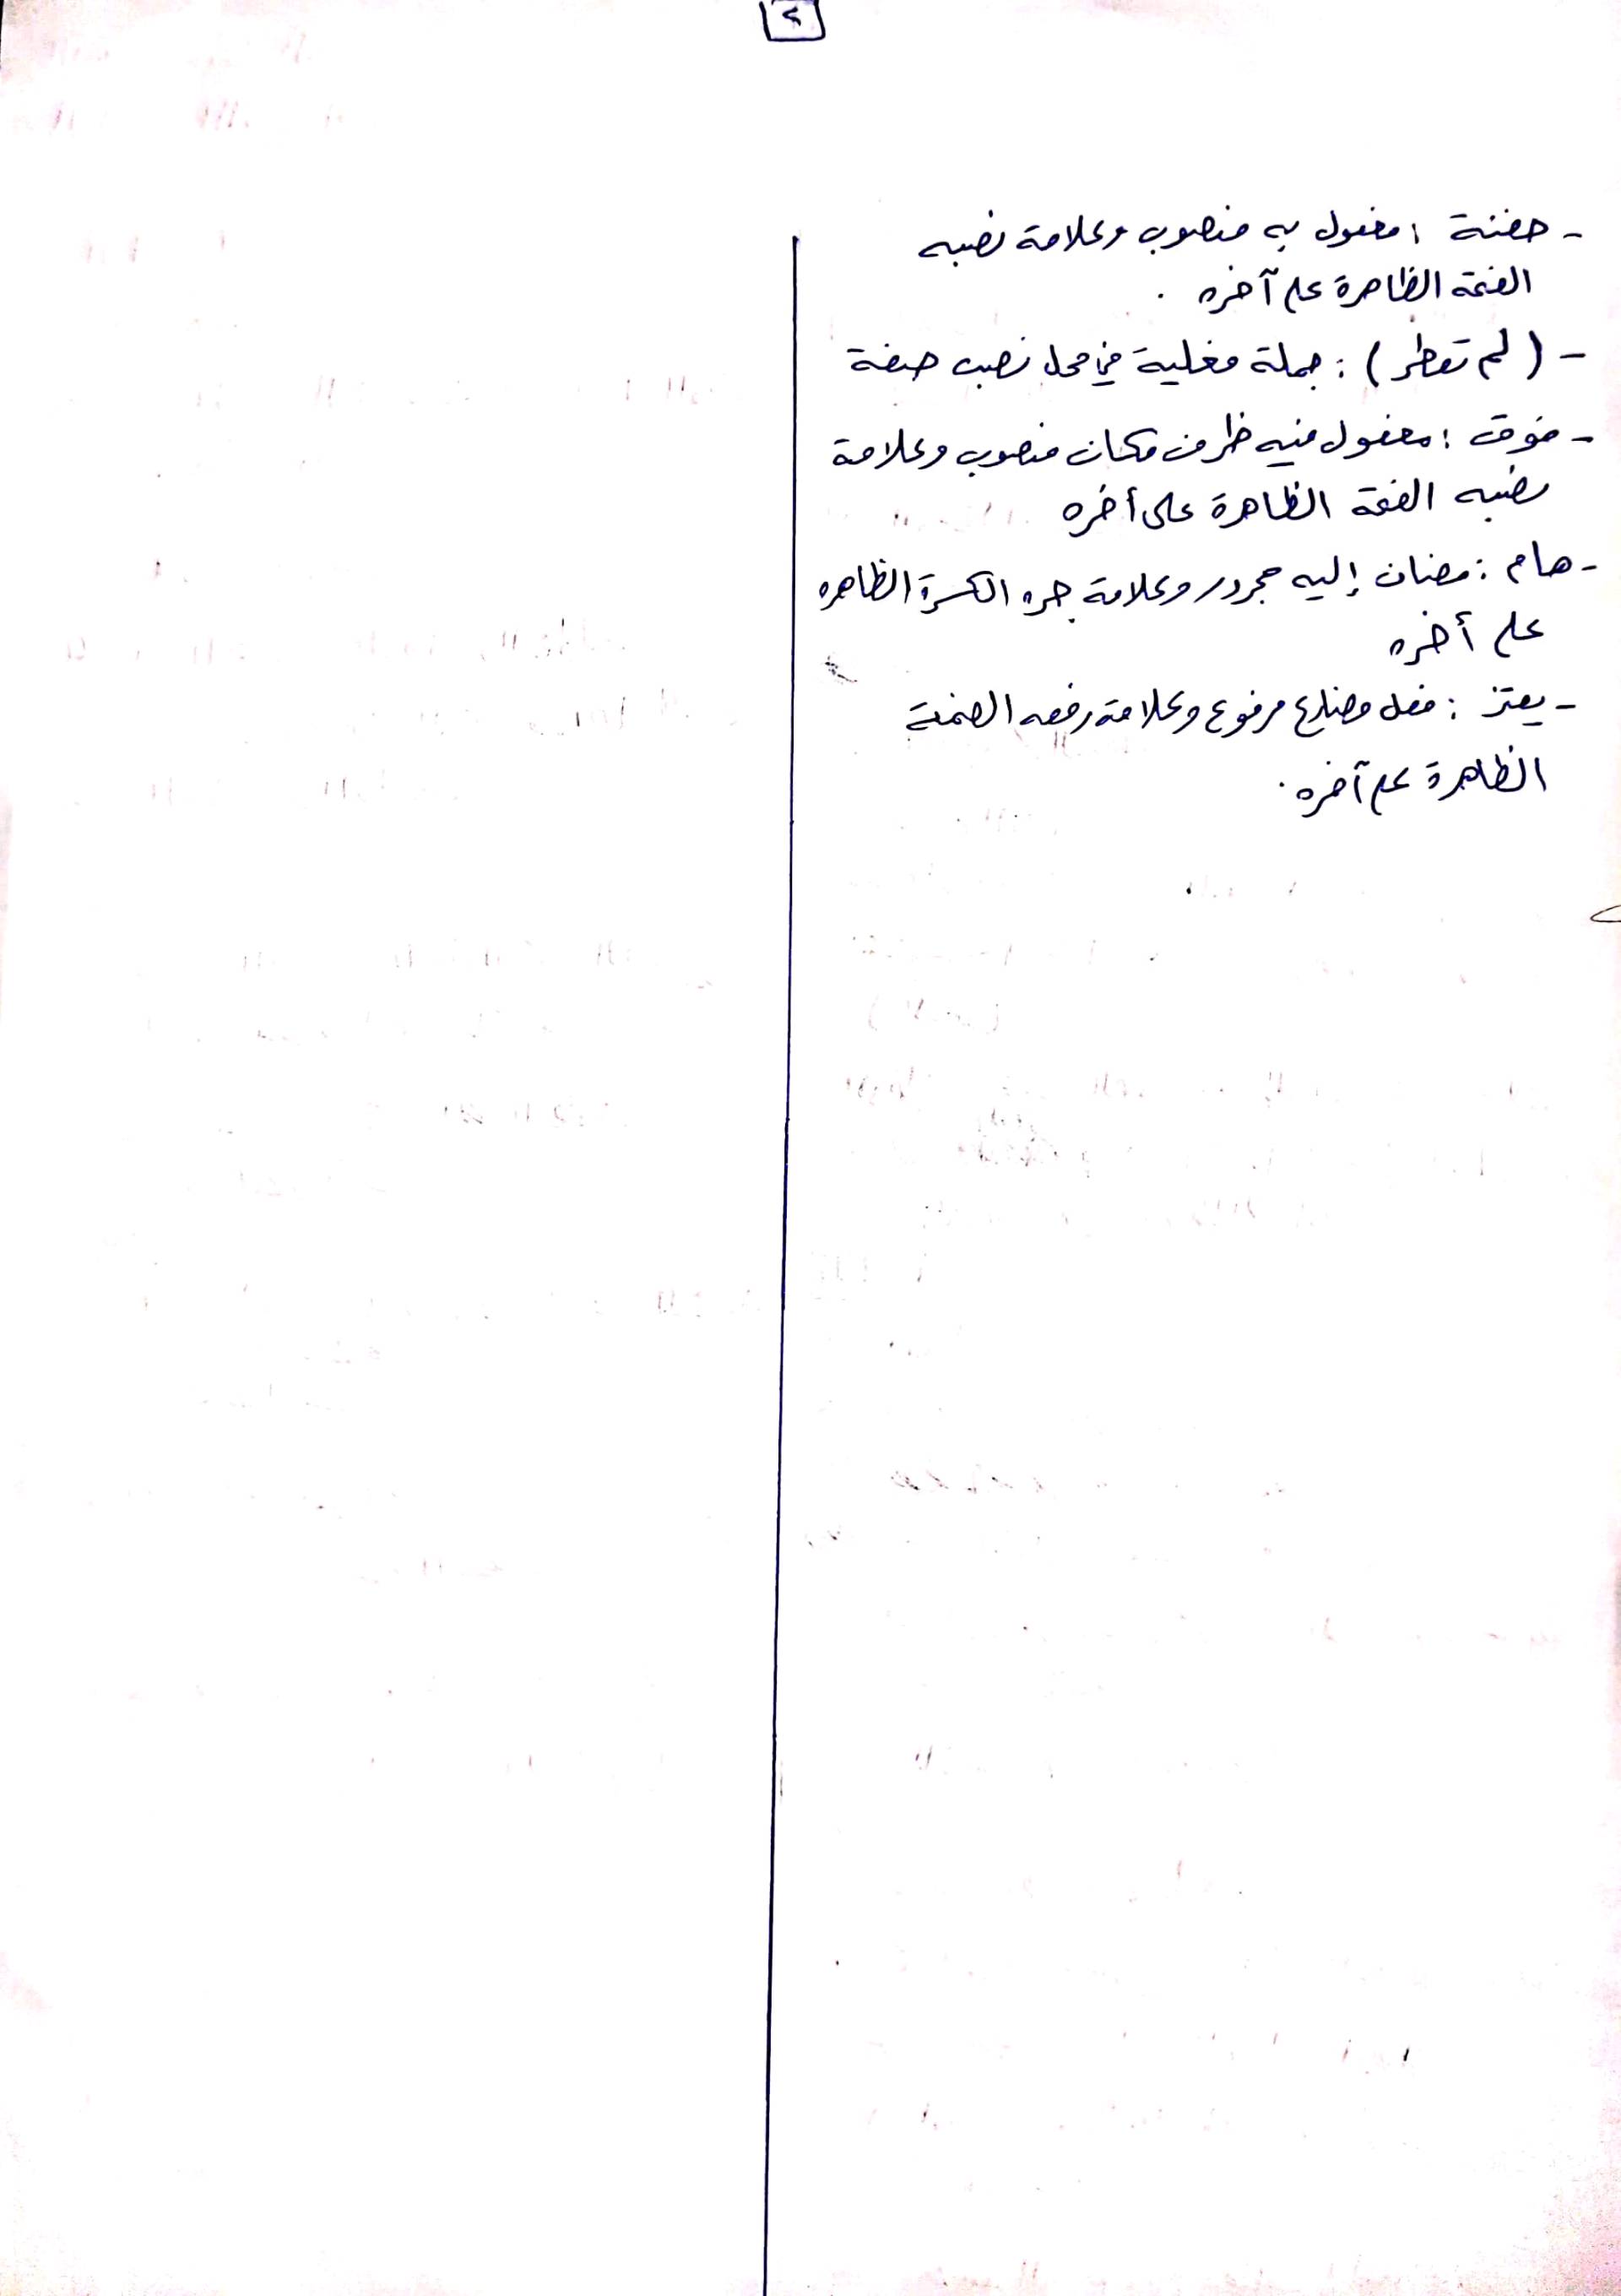 ٢
- حفنة : مفعول به منصوب وعلامة نصبه
الفتحة الظاهرة على آخره .
- ( لم تعطر ) : جملة فعلية في محل نصب صفة
- فوق : مفعول فيه ظرف مكان منصوب وعلامة
نصبه الفتحة الظاهرة على أخره
- هام : مضاف إليه مجرور وعلامة جره الكسرة الظاهره
على أخره
- يعتز : فعل مضارع مرفوع وعلامة رفعه الضمة
الظاهرة على آخره .